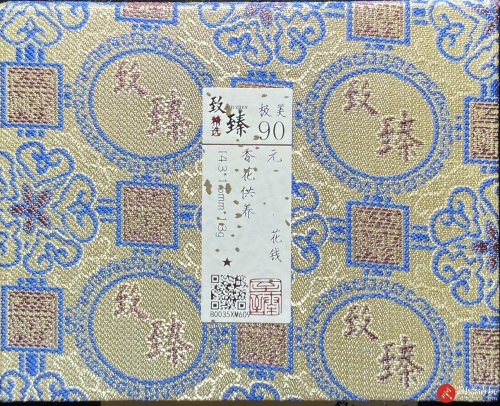 致臻
致臻
致臻
精选
极美
90
元 花钱
香花供养
★
B0035XM609
致臻
致臻